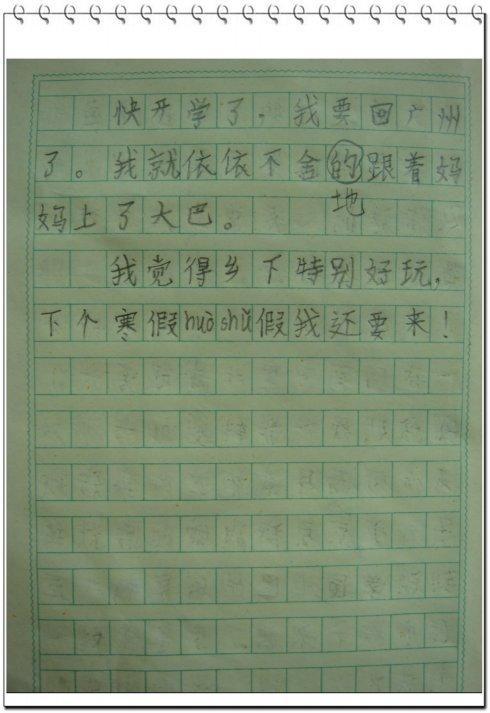 快开学了，我要回广州
了。我就依依不舍的跟着妈
地
妈上了大巴。
我觉得乡下特别好玩，
下个寒假huòshǔ假我还要来！